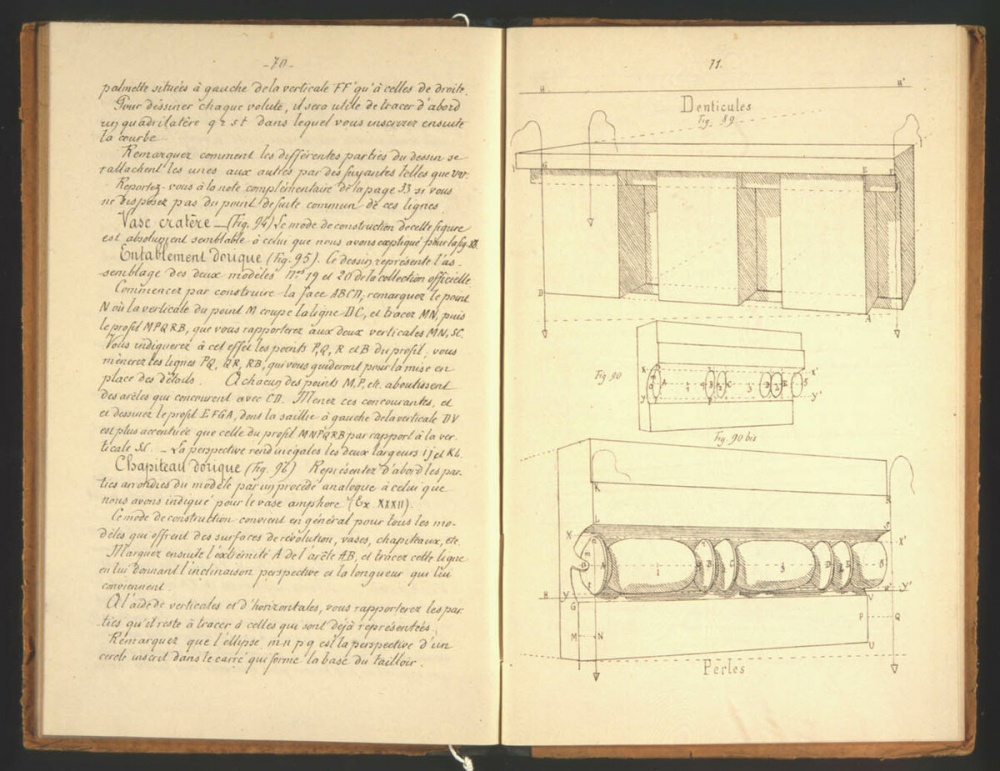 - 70 -
palmette situées à gauche de la verticale FF' qu'à celles de droite.
Pour dessiner chaque volute, il sera utile de tracer d'abord
un quadrilatère q r s t dans lequel vous inscrirez ensuite
la courbe.
Remarquez comment les différentes parties du dessin se
rattachent les unes aux autres par des fuyantes telles que
Reportez-vous à la note complémentaire de la page 33 si vous
ne disposez pas du point de fuite commun de ces lignes
Vase cratère _ (Fig. 94) Le mode de construction de cette figure
est absolument semblable à celui que nous avons expliqué pour la fig.
Entablement dorique (Fig. 95). Ce dessin représente l'as-
semblage des deux modèles nos 19 et 20 de la collection officielle
Commencez par construire la face ABCD, remarquez le point
N où la verticale du point M coupe la ligne DC, et tracez MN, puis
le profil MPQRB, que vous rapporterez aux deux verticales MN, SC.
Vous indiquerez à cet effet les points P, Q, R et B du profil, vous
mènerez les lignes PQ, QR, RB, qui vous guideront pour la mise en
place des détails. A chacun des points M, P, etc. aboutissent
des arêles qui concourent avec CD. Menez ces concourantes, et
et dessinez le profil EFGA, dont la saillie à gauche de la verticale DV
est plus accentuée que celle du profil MNPQRB par rapport à la ver-
ticale SC. _ La perspective rend inégales les deux largeurs ij et KL.
Chapiteau dorique (Fig. 96) Représentez d'abord les par-
ties arrondies du modèle par un procédé analogue à celui que
nous avons indiqué pour le vase amphore (Ex. XXXII).
Ce mode de construction convient en général pour tous les mo-
dèles qui offrent des surfaces de révolution, vases, chapiteaux, etc.
Marquez ensuite l'extrémité A de l'arête AB, et tracez cette ligne
en lui donnant l'inclinaison perspective et la longueur qui lui
conviennent.
A l'aide de verticales et d'horizontales, vous rapporterez les par-
ties qu'il reste à tracer à celles qui sont déjà représentées.
Remarquez que l'ellipse m n p q est la perspective d'un
cercle inscrit dans le carré qui forme la base du tailloir.
71.
H H'
Denticules
Fig. 89
G E F
D
A
Fig. 90
X X'
A B C D E
Y Y'
Fig. 90 bis
K S
L
X X'
A B C D E
H Y G V Y'
M N P Q
U
Perles